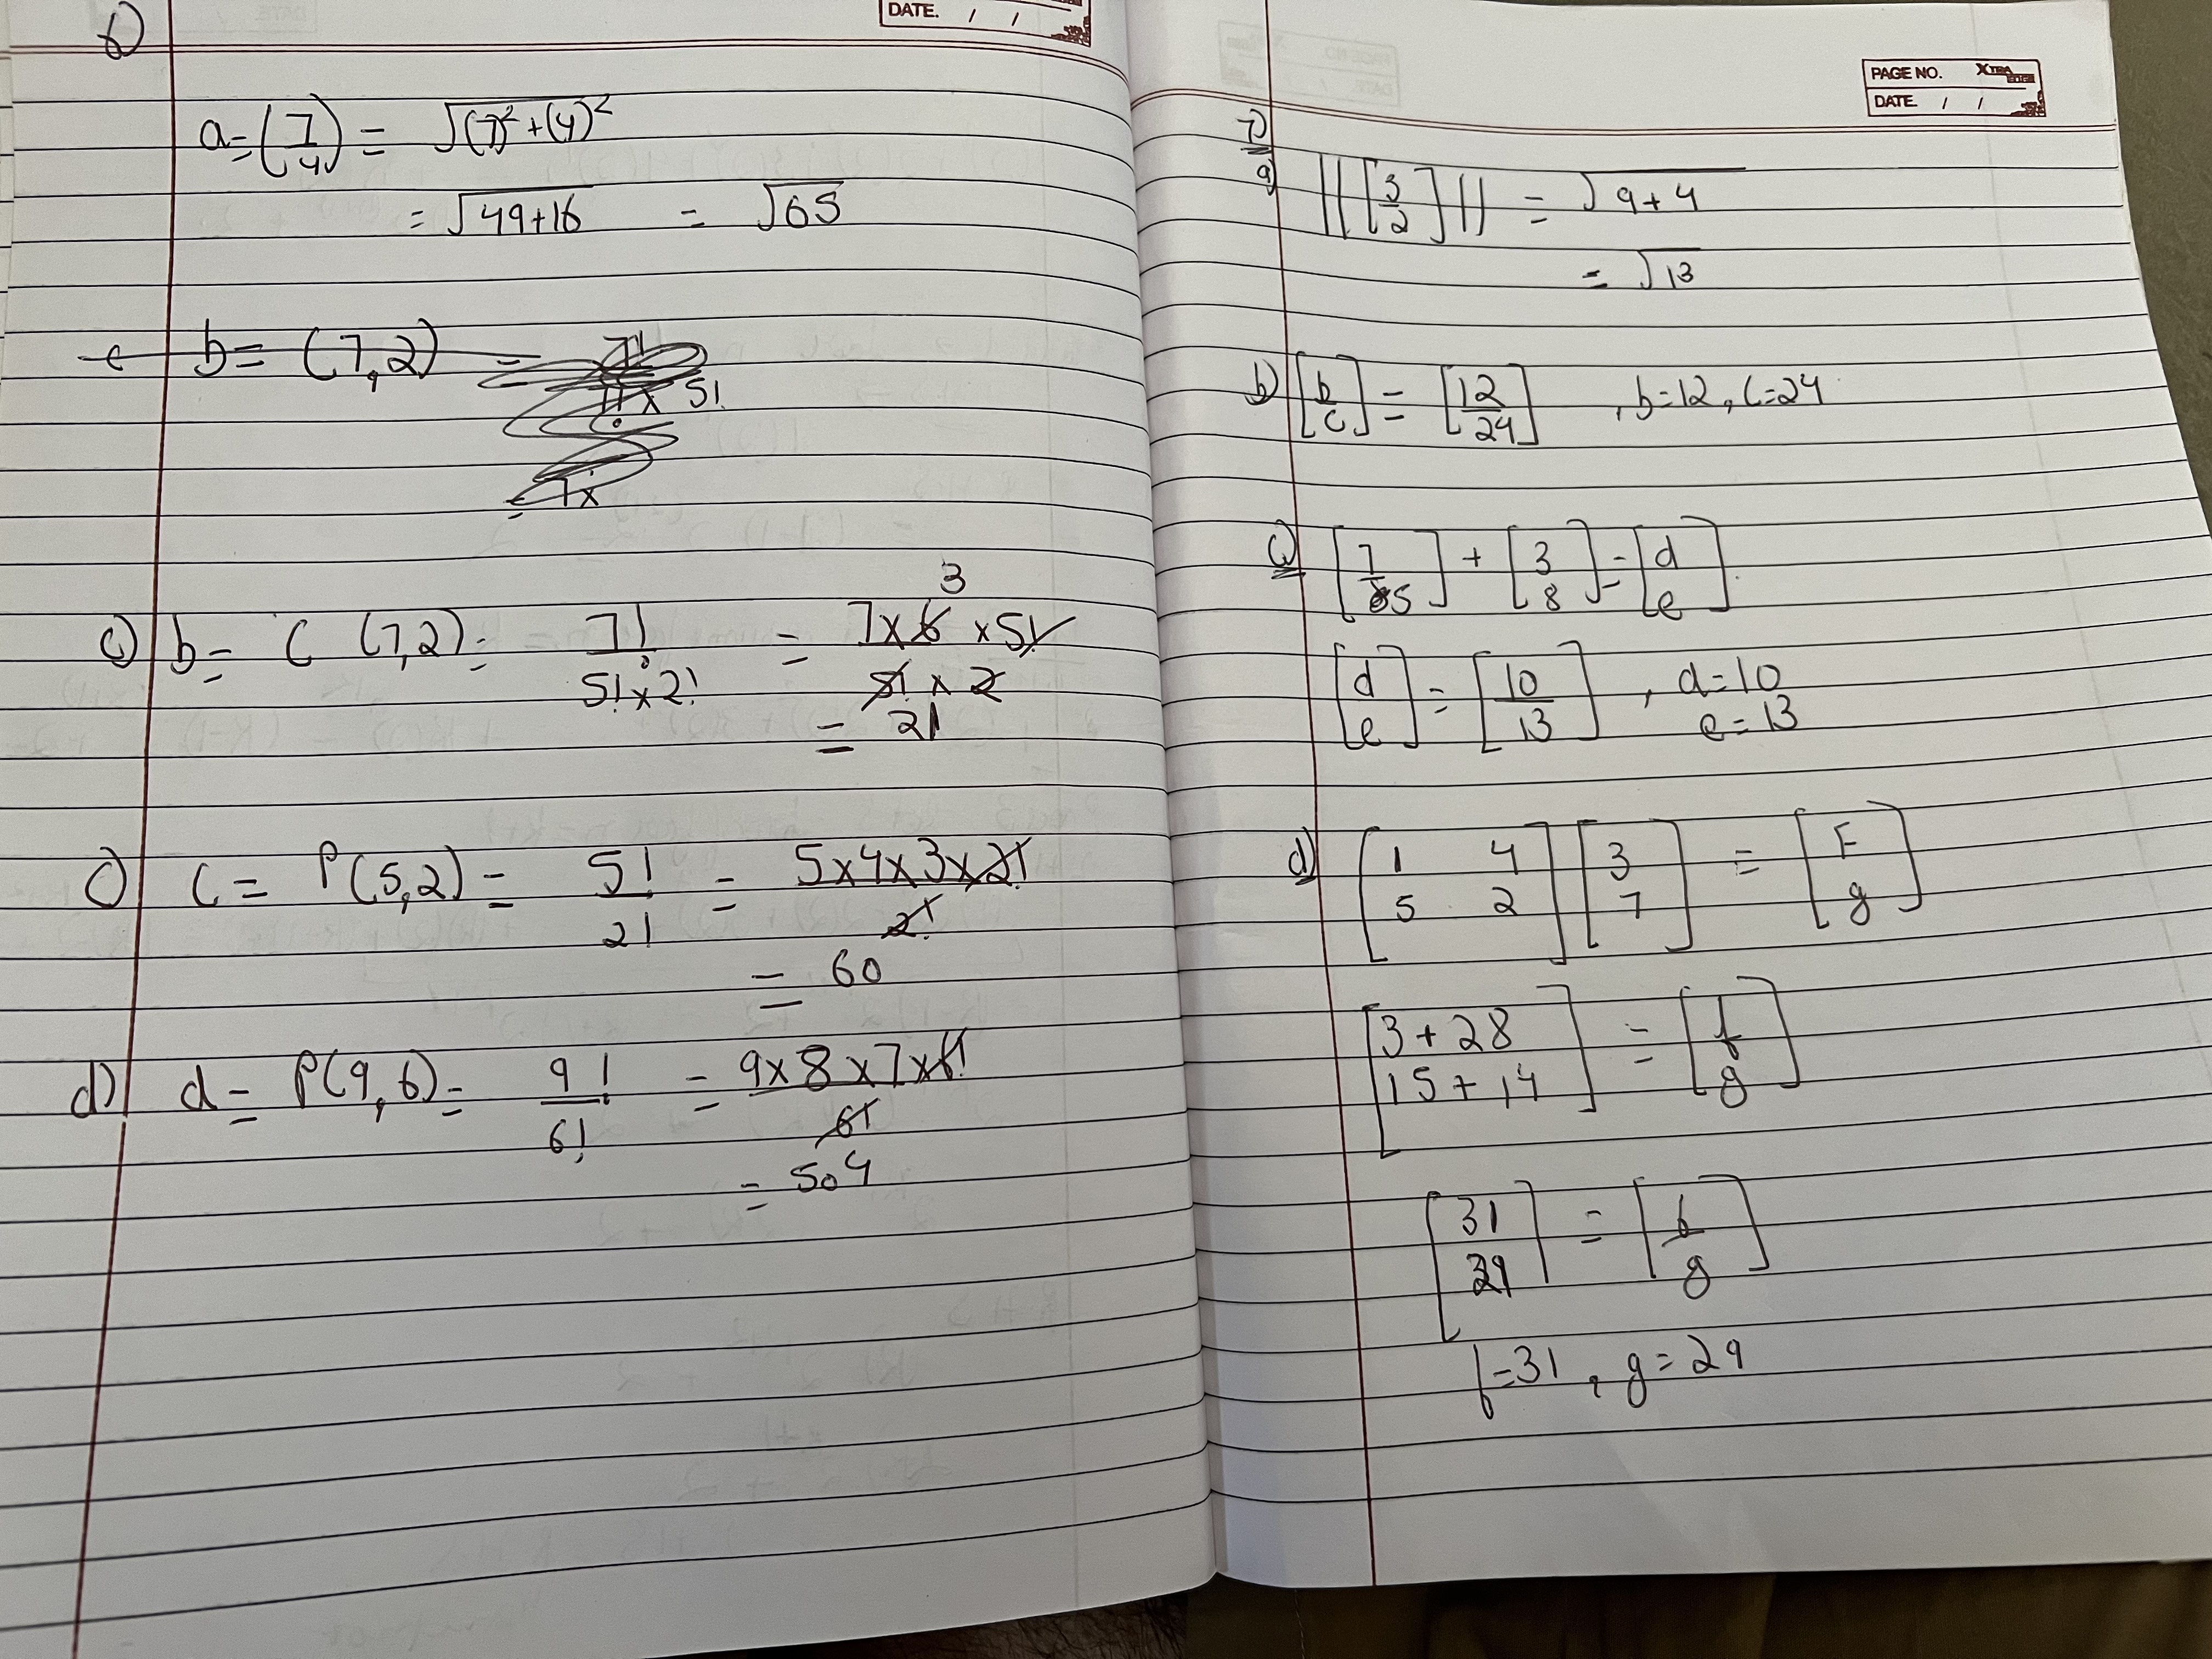 DATE. / /
b)
a = (7/4) = √(7)² + (4)²
= √49+16 = √65
b = (7,2) =
7!
7x 5!
= 7x
c) b = C (7,2) = 7! / 5! x 2! = 7x6 x5! / 5! x 2
3
= 21
C) C = P(5,2) = 5! / 2! = 5x4x3x2! / 2!
= 60
d) d = P(9,6) = 9! / 6! = 9x8x7x6! / 6!
= 504
PAGE NO. XTRA
DATE / /
7)
a) ||[3/2]|| = √9+4
= √13
b) [b/c] = [12/24] , b=12, c=24
c) [7/5] + [3/8] = [d/e]
[d/e] = [10/13] , d=10
e=13
d) [1 4
5 2] [3
7] = [F
g]
[3+28
15+14] = [f
g]
[31
29] = [f
g]
f=31 , g=29